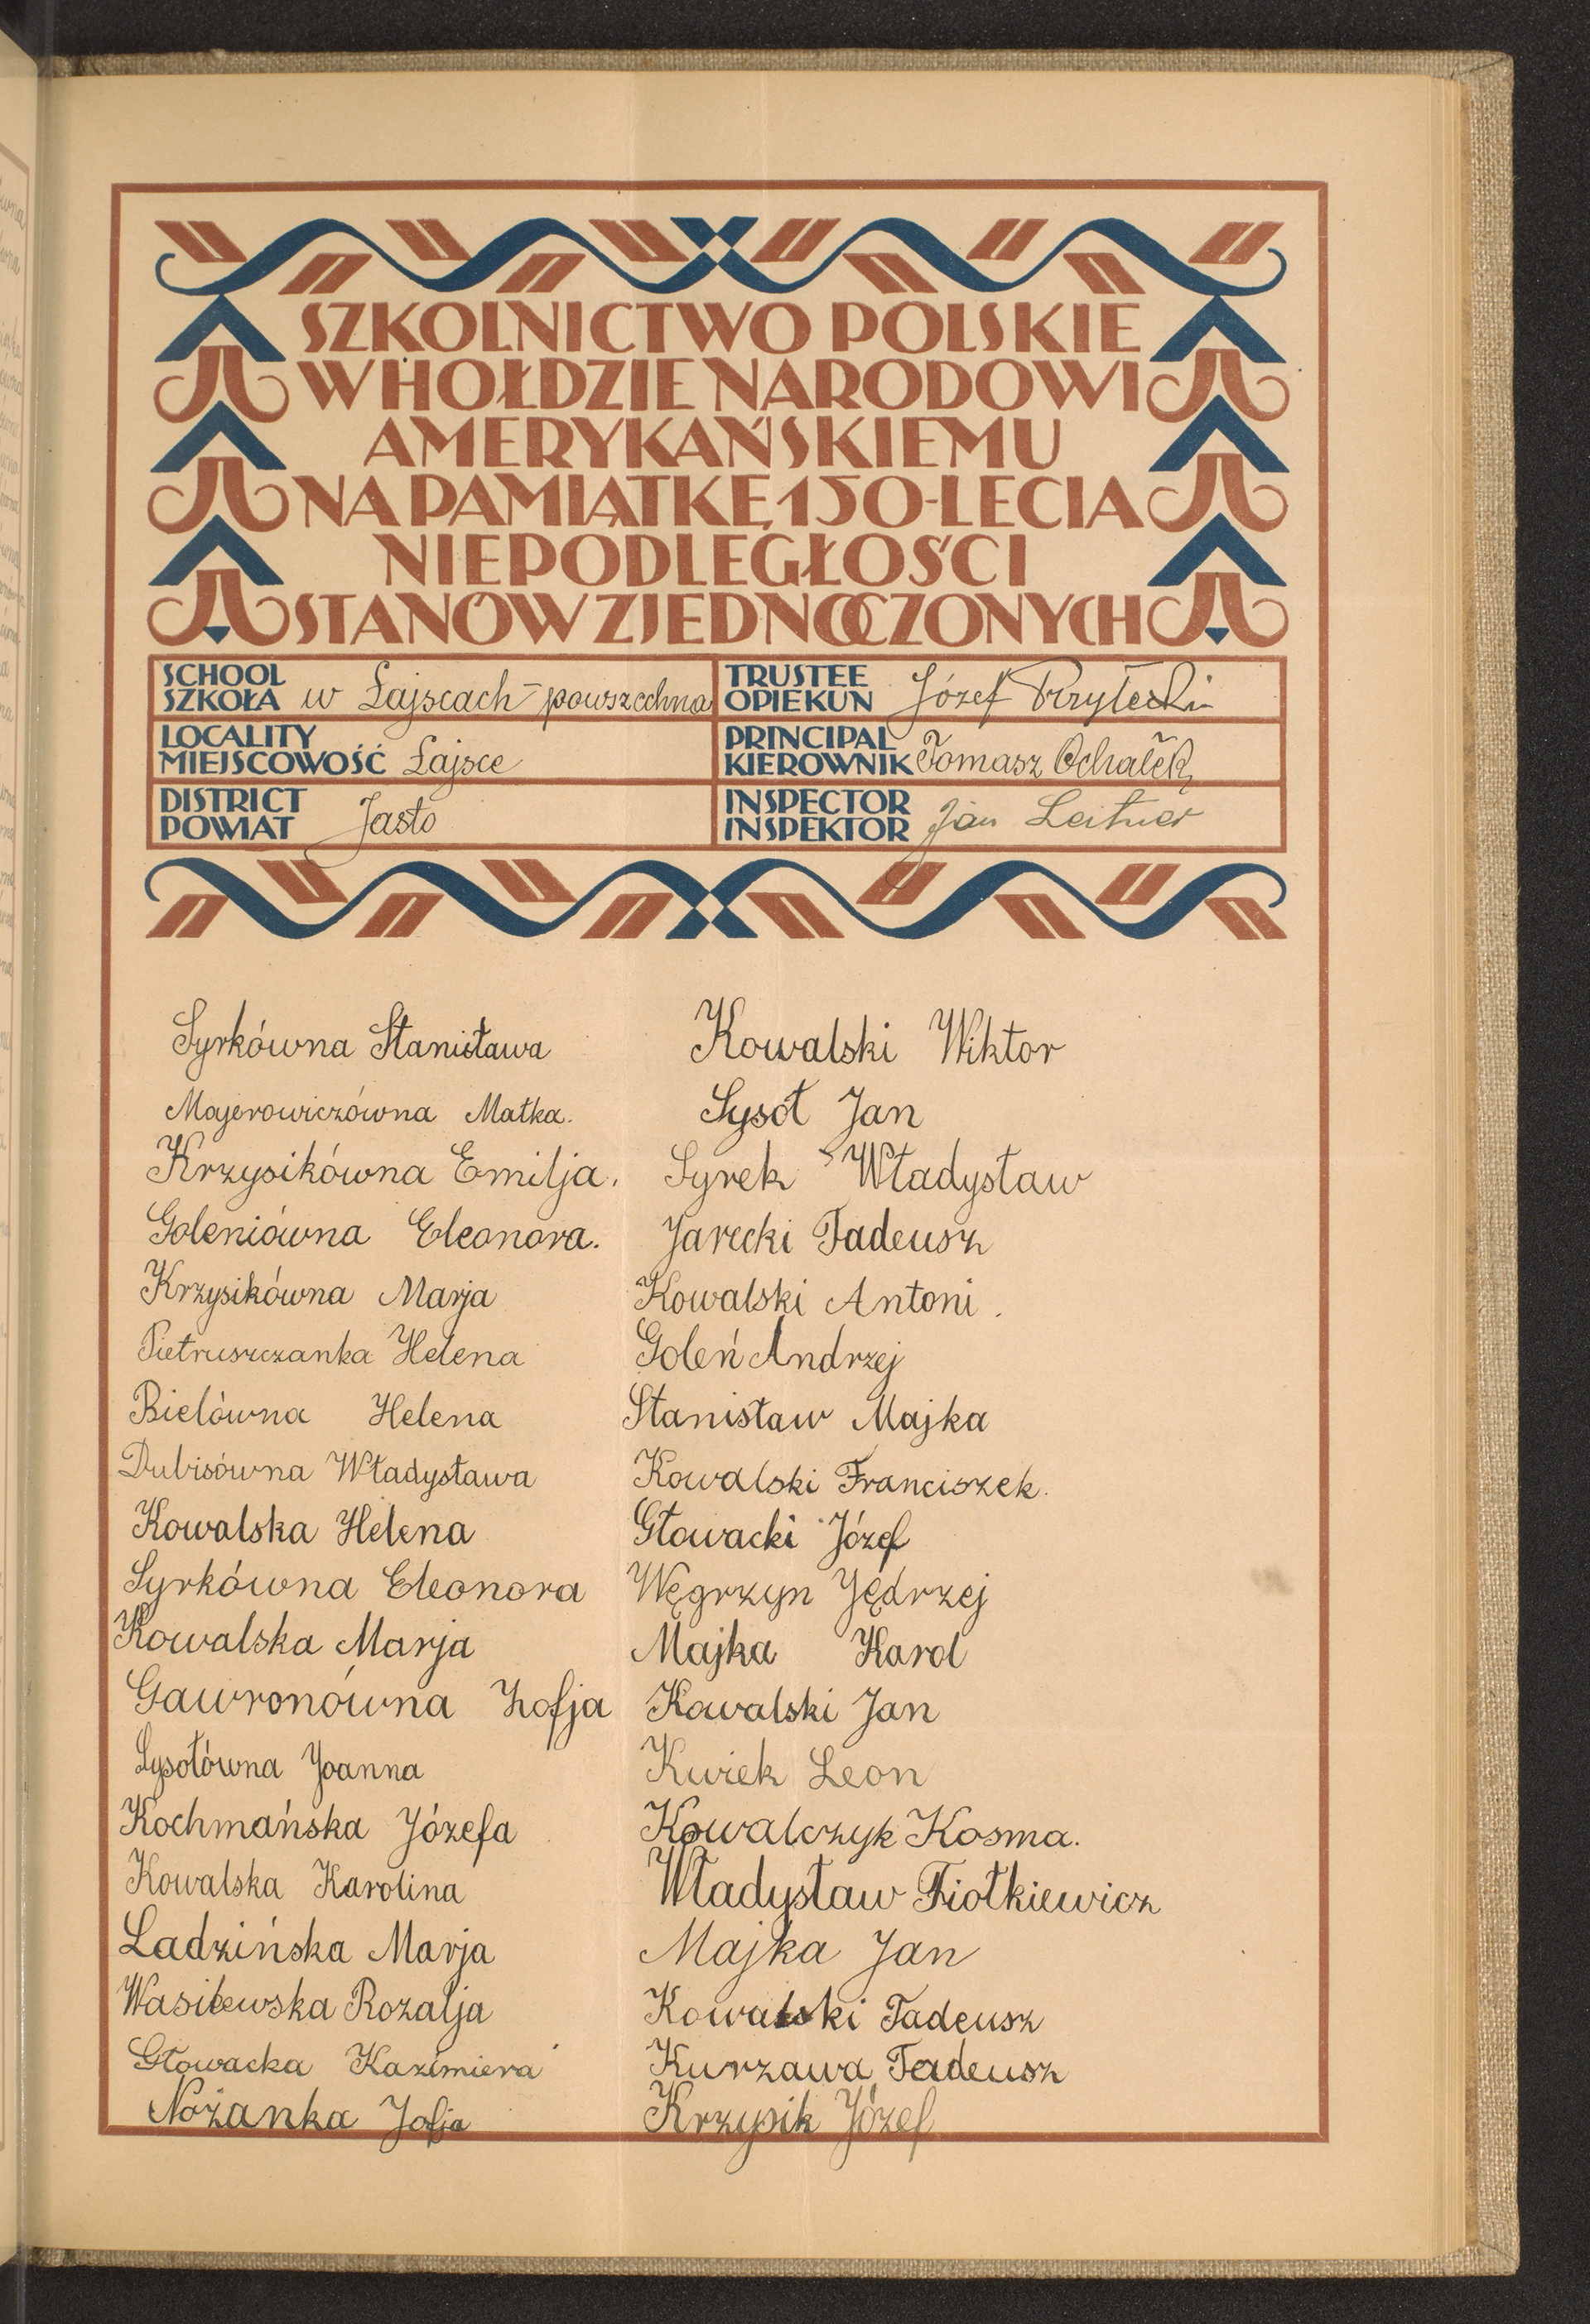 SZKOLNICTWO POLSKIE
W HOŁDZIE NARODOWI
AMERYKAŃSKIEMU
NA PAMIĄTKĘ 150-LECIA
NIEPODLEGŁOŚCI
STANÓW ZJEDNOCZONYCH
SCHOOL
SZKOŁA w Łajscach - powszechna
TRUSTEE
OPIEKUN Józef
LOCALITY
MIEJSCOWOŚĆ Łajsce
PRINCIPAL
KIEROWNIK Tomasz Ochałek
DISTRICT
POWIAT Jasło
INSPECTOR
INSPEKTOR Jan Leitner
Syrkówna Stanisława
Majerowiczówna Małka.
Krzysikówna Emilja.
Goleniówna Eleonora.
Krzysikówna Marja
Pietruszczanka Helena
Bielówna Helena
Dubisówna Władysława
Kowalska Helena
Syrkówna Eleonora
Kowalska Marja
Gawronówna Zofja
Sysołówna Joanna
Kochmańska Józefa
Kowalska Karolina
Ladzińska Marja
Wasilewska Rozalja
Głowacka Kazimiera
Nożanka Zofja
Kowalski Wiktor
Sysoł Jan
Syrek Władysław
Jarecki Tadeusz
Kowalski Antoni.
Goleń Andrzej
Stanisław Majka
Kowalski Franciszek.
Głowacki Józef
Węgrzyn Jędrzej
Majka Karol
Kowalski Jan
Kwiek Leon
Kowalczyk Kosma.
Władysław Fiołkiewicz
Majka Jan
Kowalski Tadeusz
Kurzawa Tadeusz
Krzysik Józef